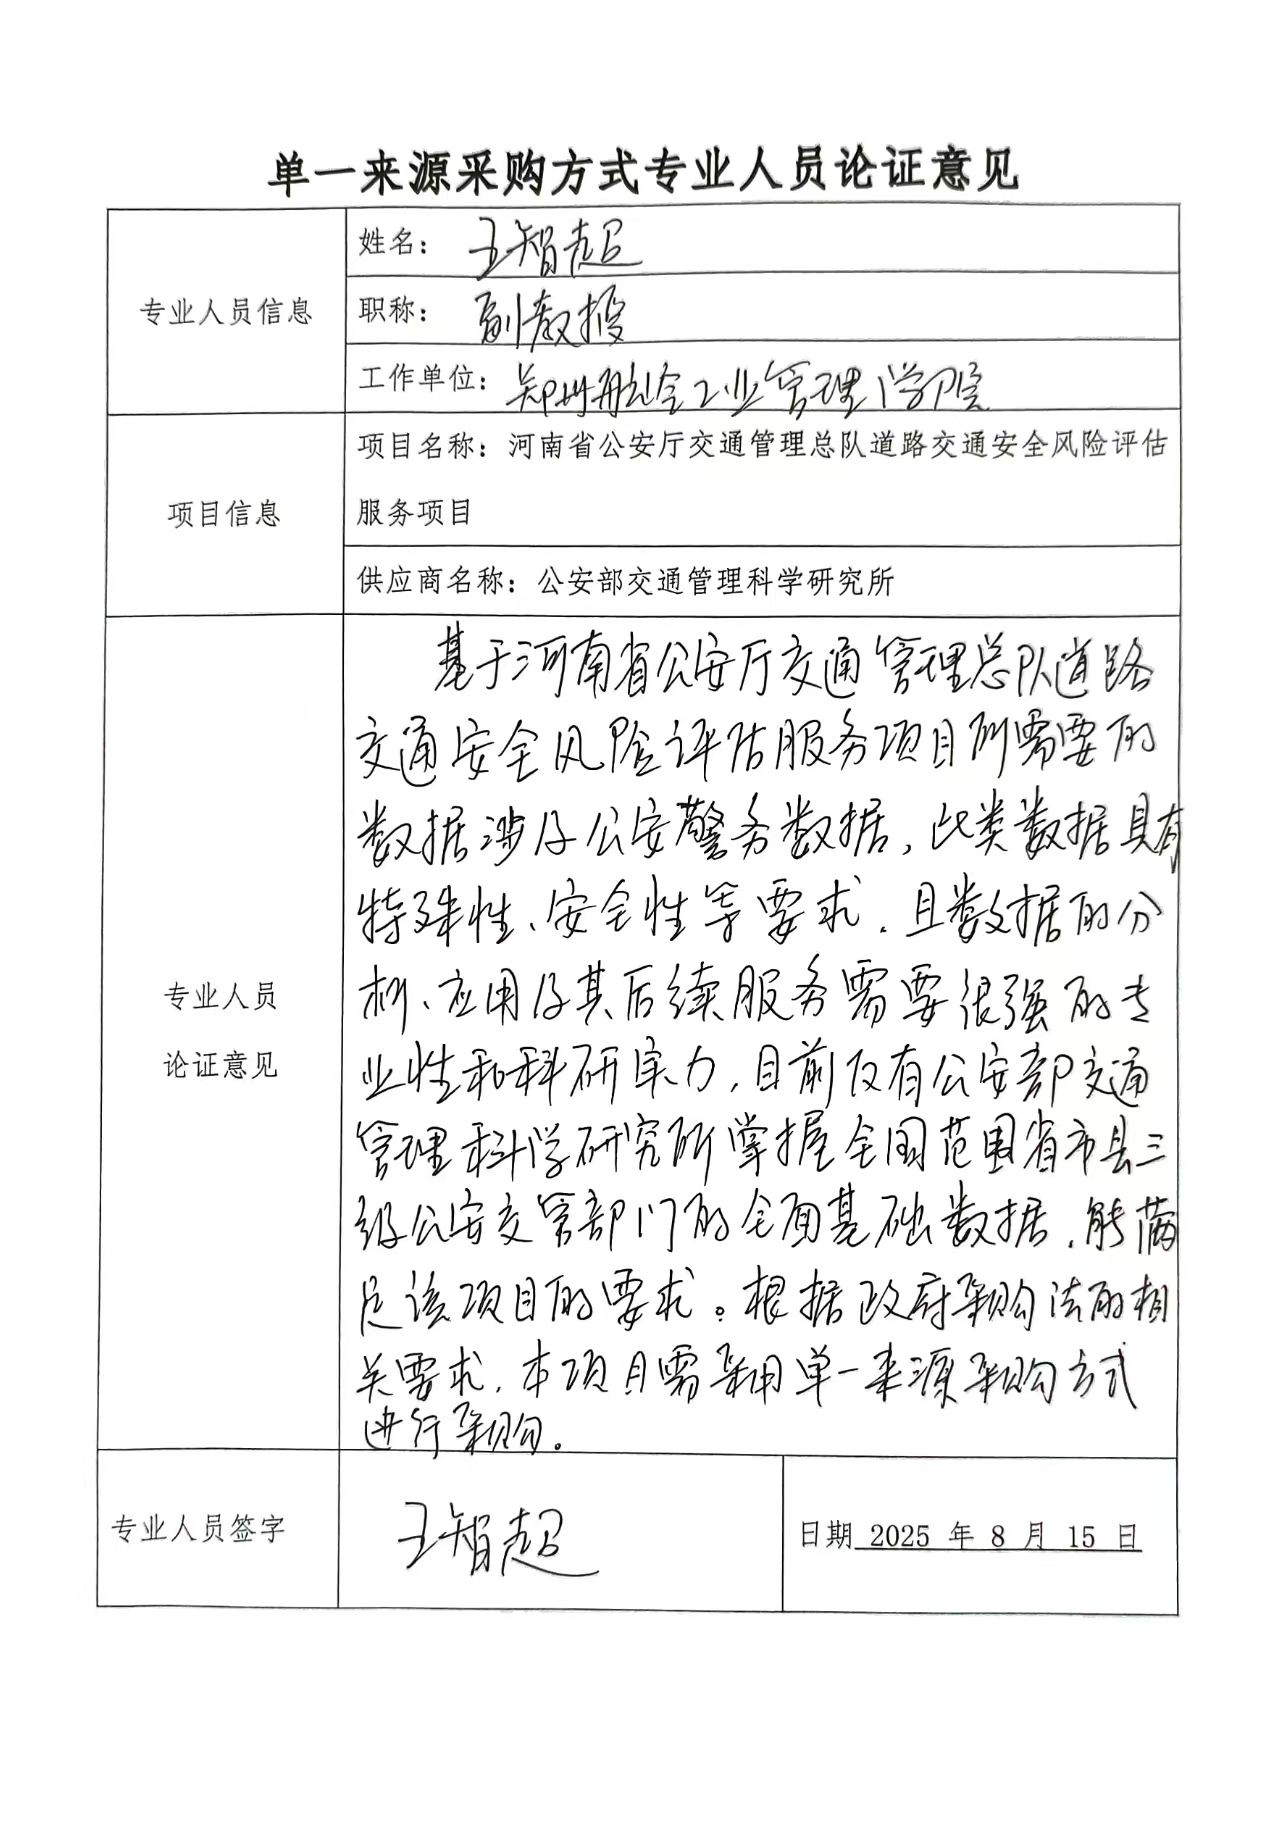 单一来源采购方式专业人员论证意见
专业人员信息
姓名：王智超
职称：副教授
工作单位：郑州航空工业管理学院
项目信息
项目名称：河南省公安厅交通管理总队道路交通安全风险评估
服务项目
供应商名称：公安部交通管理科学研究所
专业人员
论证意见
基于河南省公安厅交通管理总队道路
交通安全风险评估服务项目所需要的
数据涉及公安警务数据，此类数据具有
特殊性、安全性等要求，且数据的分
析、应用及其后续服务需要很强的专
业性和科研实力，目前仅有公安部交通
管理科学研究所掌握全国范围省市县三
级公安交管部门的全面基础数据，能满
足该项目的要求。根据政府采购法的相
关要求，本项目需采用单一来源采购方式
进行采购。
专业人员签字
王智超
日期 2025 年 8 月 15 日